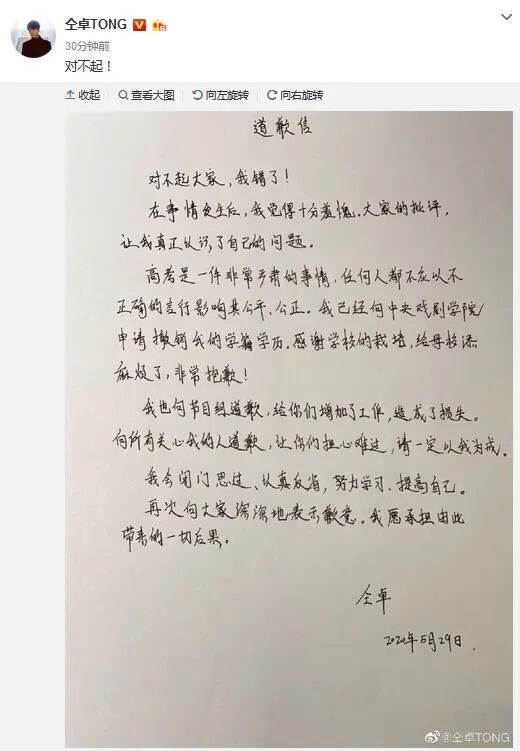 仝卓TONG
30分钟前
对不起！
收起 查看大图 向左旋转 向右旋转
道歉信
对不起大家，我错了！
在事情发生后，我觉得十分羞愧。大家的批评，
让我真正认识了自己的问题。
高考是一件非常严肃的事情，任何人都不应以不
正确的言行影响其公平、公正。我已经向中央戏剧学院
申请撤销我的学籍学历。感谢学校的栽培，给母校添
麻烦了，非常抱歉！
我也向节目组道歉，给你们增加了工作，造成了损失。
向所有关心我的人道歉，让你们担心难过，请一定以我为戒。
我会闭门思过、认真反省，努力学习、提高自己。
再次向大家深深地表示歉意。我愿承担由此
带来的一切后果。
仝卓
2020年5月29日.
@仝卓TONG